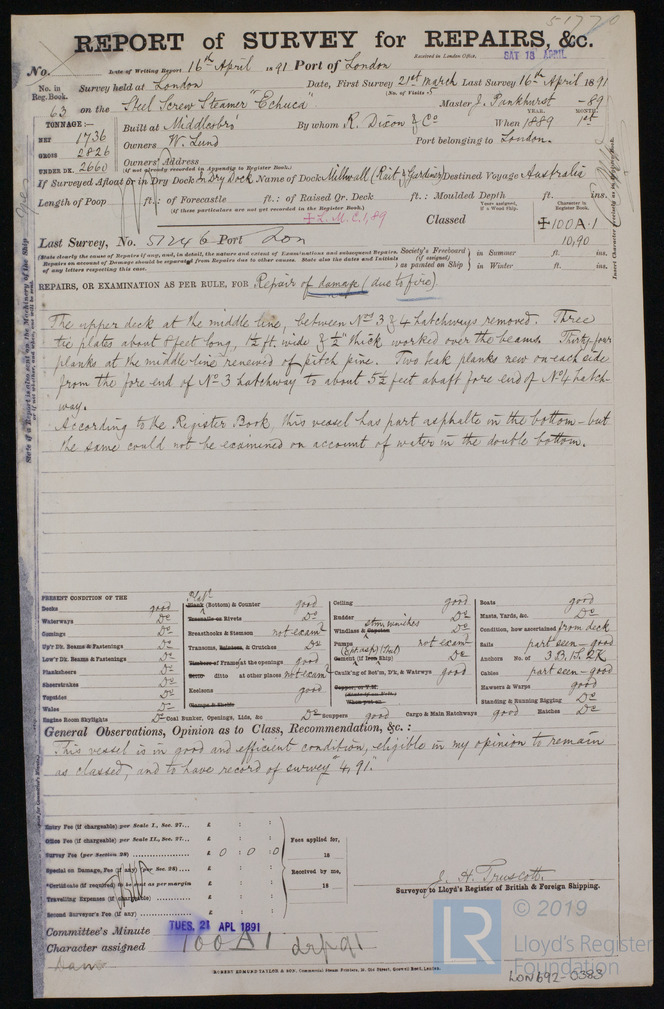 51770
REPORT of SURVEY for REPAIRS, &c.
Received in London Office, SAT 18 APRIL
No. Date of Writing Report 16th April 1891 Port of London
No. in Reg. Book. Survey held at London Date, First Survey 21st March Last Survey 16th April 1891
(No. of Visits 5
63 on the Steel Screw Steamer "Echuca" Master J. Pankhurst -89
TONNAGE:— YEAR. MONTH.
NET 1736 Built at Middlesbro' By whom R. Dixon & Co When 1889 1st
GROSS 2826 Owners W. Lund Port belonging to London.
UNDER DK. 2660 Owners' Address
(If not already recorded in Appendix to Register Book.)
If Surveyed Afloat or in Dry Dock Dry Dock Name of Dock Millwall Destined Voyage Australia
Length of Poop ft.: of Forecastle ft.: of Raised Qr. Deck ft.: Moulded Depth ft. ins.
(If these particulars are not yet recorded in the Register Book.)
Character in Register Book.
+L.M.C. 1,89 Classed +100A.1
Last Survey, No. 51246 Port Lon 10,90
(State clearly the cause of Repairs if any, and, in detail, the nature and extent of Examinations and subsequent Repairs. Repairs on account of Damage should be separated from Repairs due to other causes. State also the dates and Initials of any letters respecting this case.
Society's Freeboard (if assigned) as painted on Ship in Summer ft. ins.
in Winter ft. ins.
REPAIRS, OR EXAMINATION AS PER RULE, FOR Repairs of damage (due to fire)
The upper deck at the middle line, between Nos 3 & 4 hatchways removed. Three
tie plates about 8 feet long, 1½ ft. wide & ½" thick worked over the beams. Thirty four
planks at the middle line renewed of pitch pine. Two teak planks new on each side
from the fore end of No 3 hatchway to about 5½ feet abaft fore end of No 4 hatch-
way.
According to the Register Book, this vessel has part asphalte in the bottom - but
the same could not be examined on account of water in the double bottom.
PRESENT CONDITION OF THE
Decks good
Waterways Do
Comings Do
Up'r Dk. Beams & Fastenings Do
Low'r Dk. Beams & Fastenings Do
Planksheers Do
Sheerstrakes Do
Topsides Do
Wales Do
Engine Room Skylights Do
Plank (Bottom) & Counter good
Treenails or Rivets Do
Breasthooks & Stemson not examd
Transoms, Pointers, & Crutches Do
Timbers of Frame at the openings good
Ditto ditto at other places not examd
Keelsons good
Clamps & Shelfs
Coal Bunker, Openings, Lids, &c Do
Ceiling good
Rudder Do
Windlass & Capstan steam winches Do
Pumps not examd
Cement (if Iron Ship) Do
Caulk'ng of Bot'm, D'k, & Watrwys good
Scuppers good Cargo & Main Hatchways good Hatches Do
Boats good
Masts, Yards, &c. Do
Condition, how ascertained from deck
Sails part seen - good
Anchors No. of
Cables part seen - good
Hawsers & Warps good
Standing & Running Rigging Do
General Observations, Opinion as to Class, Recommendation, &c.:
This vessel is in good and efficient condition, eligible in my opinion to remain
as classed, and to have record of survey "4,91".
Entry Fee (if chargeable) per Scale I., Sec. 27... £ : :
Office Fee (if chargeable) per Scale II., Sec. 27... £ : :
Survey Fee (per Section 28) £ 0 : 0 : 0
Special on Damage, Fee (if any) (per Sec. 28) £ : :
Certificate (if required) to be sent as per margin £ : :
Travelling Expenses (if chargeable) £ : :
Second Surveyor's Fee (if any) £ : :
Fees applied for, 18
Received by me, 18
J. H. Truscott.
Surveyor to Lloyd's Register of British & Foreign Shipping.
Committee's Minute TUES. 21 APL 1891
Character assigned 100A1 drp 91
ROBERT EDMUND TAYLOR & SON, Commercial Steam Printers, 19, Old Street, Goswell Road, London.
© 2019
LR
Lloyd's Register
Foundation
LON692-0383